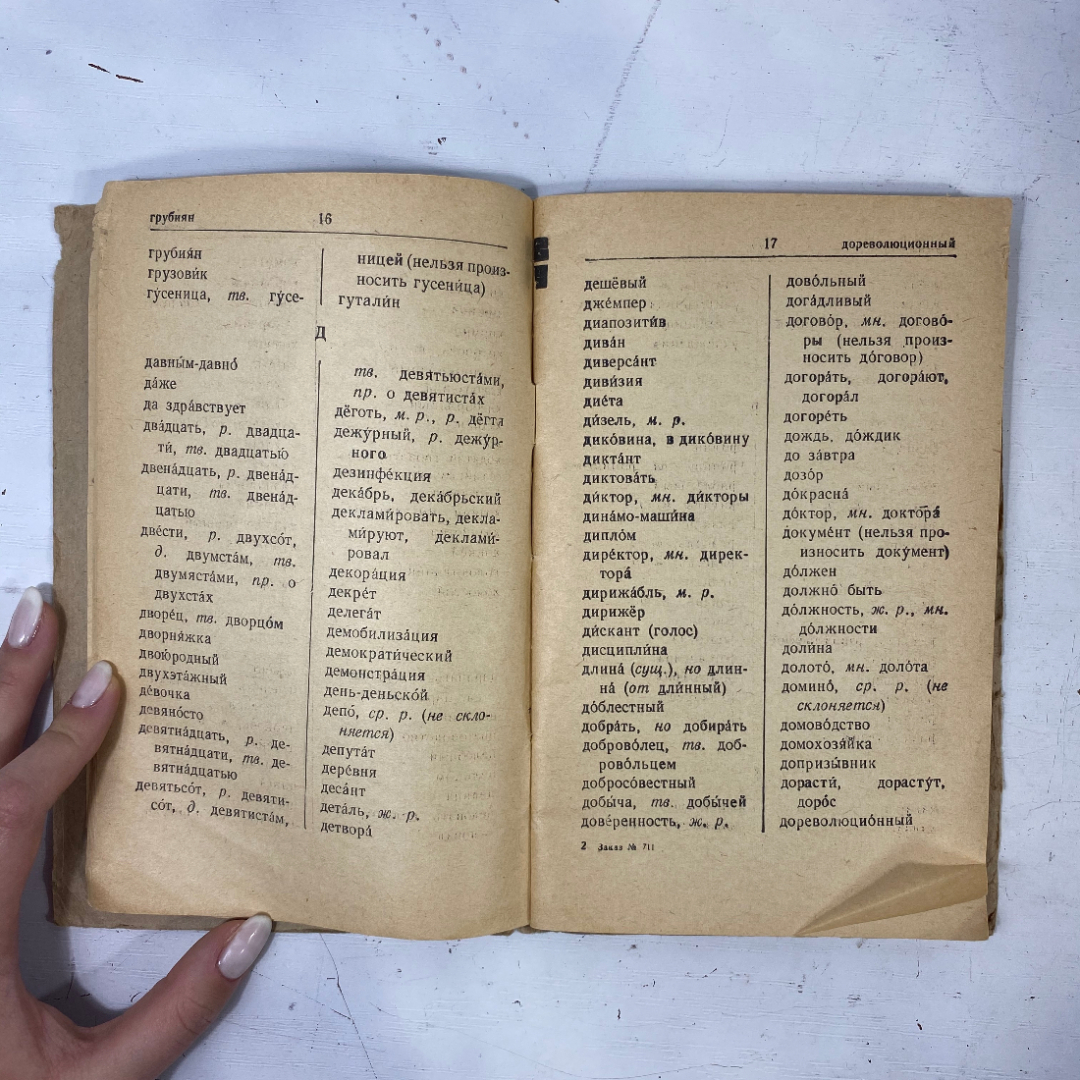 грубиян 16
грубия́н
грузови́к
гу́сеница, тв. гу́се-
ницей (нельзя произ-
носить гусени́ца)
гутали́н
Д
давны́м-давно́
да́же
да здра́вствует
два́дцать, р. двадца-
ти́, тв. двадцатью́
двена́дцать, р. двена́д-
цати, тв. двена́д-
цатью
две́сти, р. двухсо́т,
д. двумста́м, тв.
двумяста́ми, пр. о
двухста́х
дворе́ц, тв. дворцо́м
дворня́жка
двою́родный
двухэта́жный
де́вочка
девяно́сто
девятна́дцать, р. де-
вятна́дцати, тв. де-
вятна́дцатью
девятьсо́т, р. девяти-
со́т, д. девятиста́м,
тв. девятьюста́ми,
пр. о девятиста́х
дёготь, м. р., р. дёгтя
дежу́рный, р. дежу́р-
ного
дезинфе́кция
дека́брь, дека́брьский
деклами́ровать, декла-
ми́руют, деклами́-
ровал
декора́ция
декре́т
делега́т
демобилиза́ция
демократи́ческий
демонстра́ция
день-деньско́й
депо́, ср. р. (не скло-
няется)
депута́т
дере́вня
деса́нт
дета́ль, ж. р.
детвора́
17 дореволюционный
дешёвый
дже́мпер
диапозити́в
дива́н
диверса́нт
диви́зия
дие́та
ди́зель, м. р.
дико́вина, в дико́вину
дикта́нт
диктова́ть
ди́ктор, мн. ди́кторы
дина́мо-маши́на
дипло́м
дире́ктор, мн. дирек-
тора́
дирижа́бль, м. р.
дирижёр
ди́скант (голос)
дисципли́на
длина́ (сущ.), но длин-
на́ (от дли́нный)
до́блестный
добра́ть, но добира́ть
доброво́лец, тв. доб-
рово́льцем
добросо́вестный
добы́ча, тв. добы́чей
дове́ренность, ж. р.
2 Заказ № 711
дово́льный
дога́дливый
догово́р, мн. догово́-
ры (нельзя произ-
носить до́говор)
догора́ть, догора́ют,
догора́л
догоре́ть
дождь, до́ждик
до за́втра
дозо́р
до́красна́
до́ктор, мн. доктора́
докуме́нт (нельзя про-
износить доку́мент)
до́лжен
должно́ быть
до́лжность, ж. р., мн.
до́лжности
доли́на
долото́, мн. доло́та
домино́, ср. р. (не
склоняется)
домово́дство
домохозя́йка
допризы́вник
дорасти́, дорасту́т,
доро́с
дореволюцио́нный